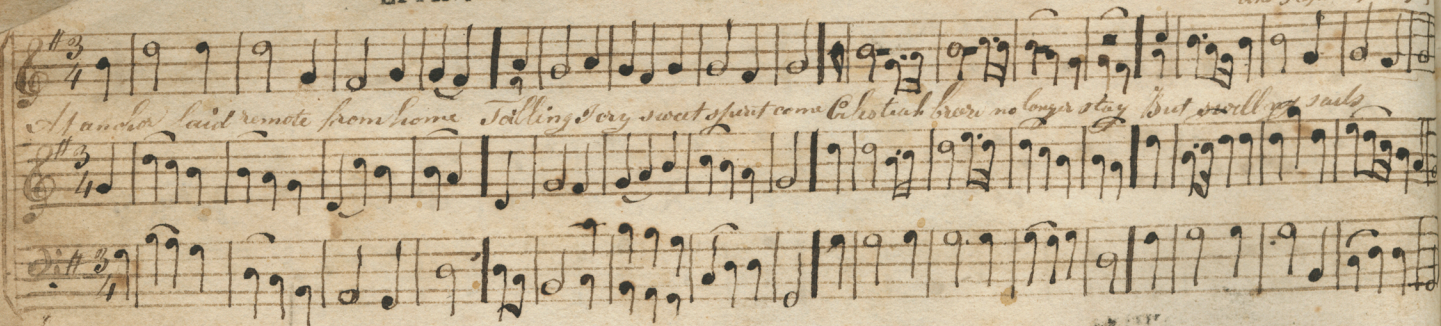 At anchor laid remote from home Toiling I cry sweet spirit come Celestial breeze no longer stay But swell my sails